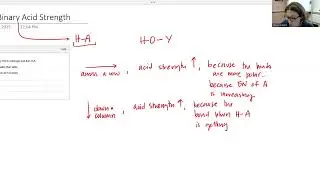 Binary Acid Strength
12:04 PM
H-A
H-O-Y
across a row, acid strength ↑, because the bonds
are more polar...
because EN of A
is increasing
down a
column, acid strength ↑, because the
bond btwn H-A
is getting